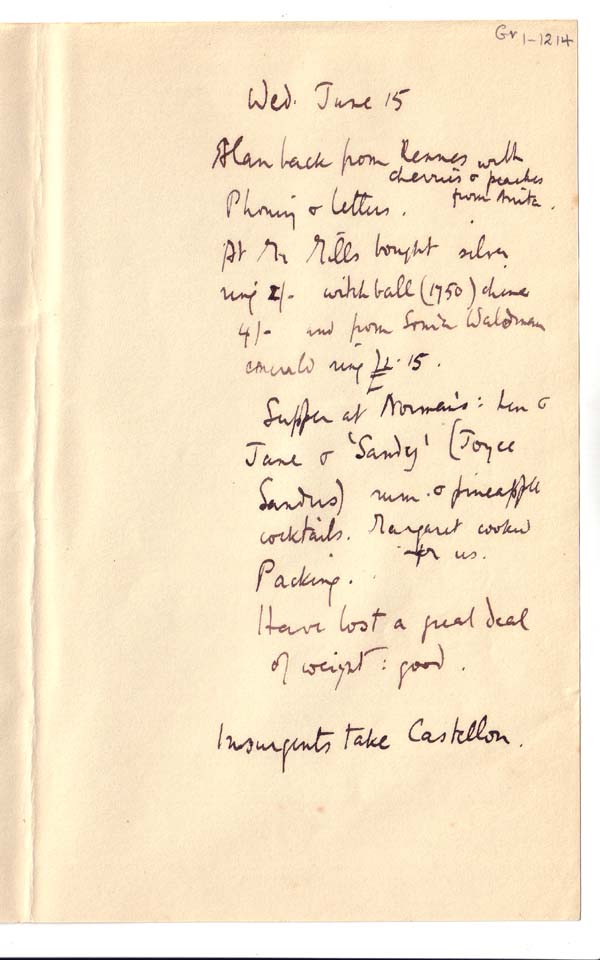 Gr 1-1214
Wed. June 15
Alan back from Rennes with
cherries & peaches
from Anita.
Phoning & letters.
At Mr Mills bought silver
ring 2/- witchball (1750) chine
4/- and from Sonia Waldman
emerald ring £1.15.
Supper at Norman's: Len &
Jane & 'Sandy' (Joyce
Sandys) rum & pineapple
cocktails. Margaret cooked
for us.
Packing.
Have lost a great deal
of weight: good.
Insurgents take Castellon.